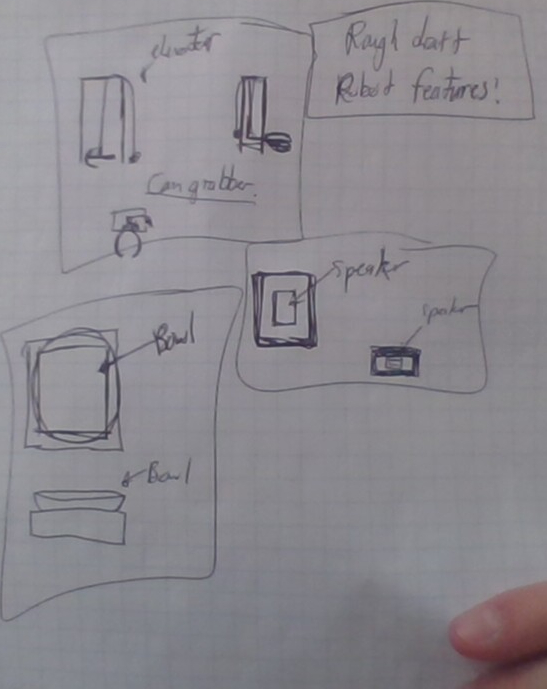 Rough daft
Robot features!
elevator
Can grabber.
speaker
speaker
Bowl
Bowl